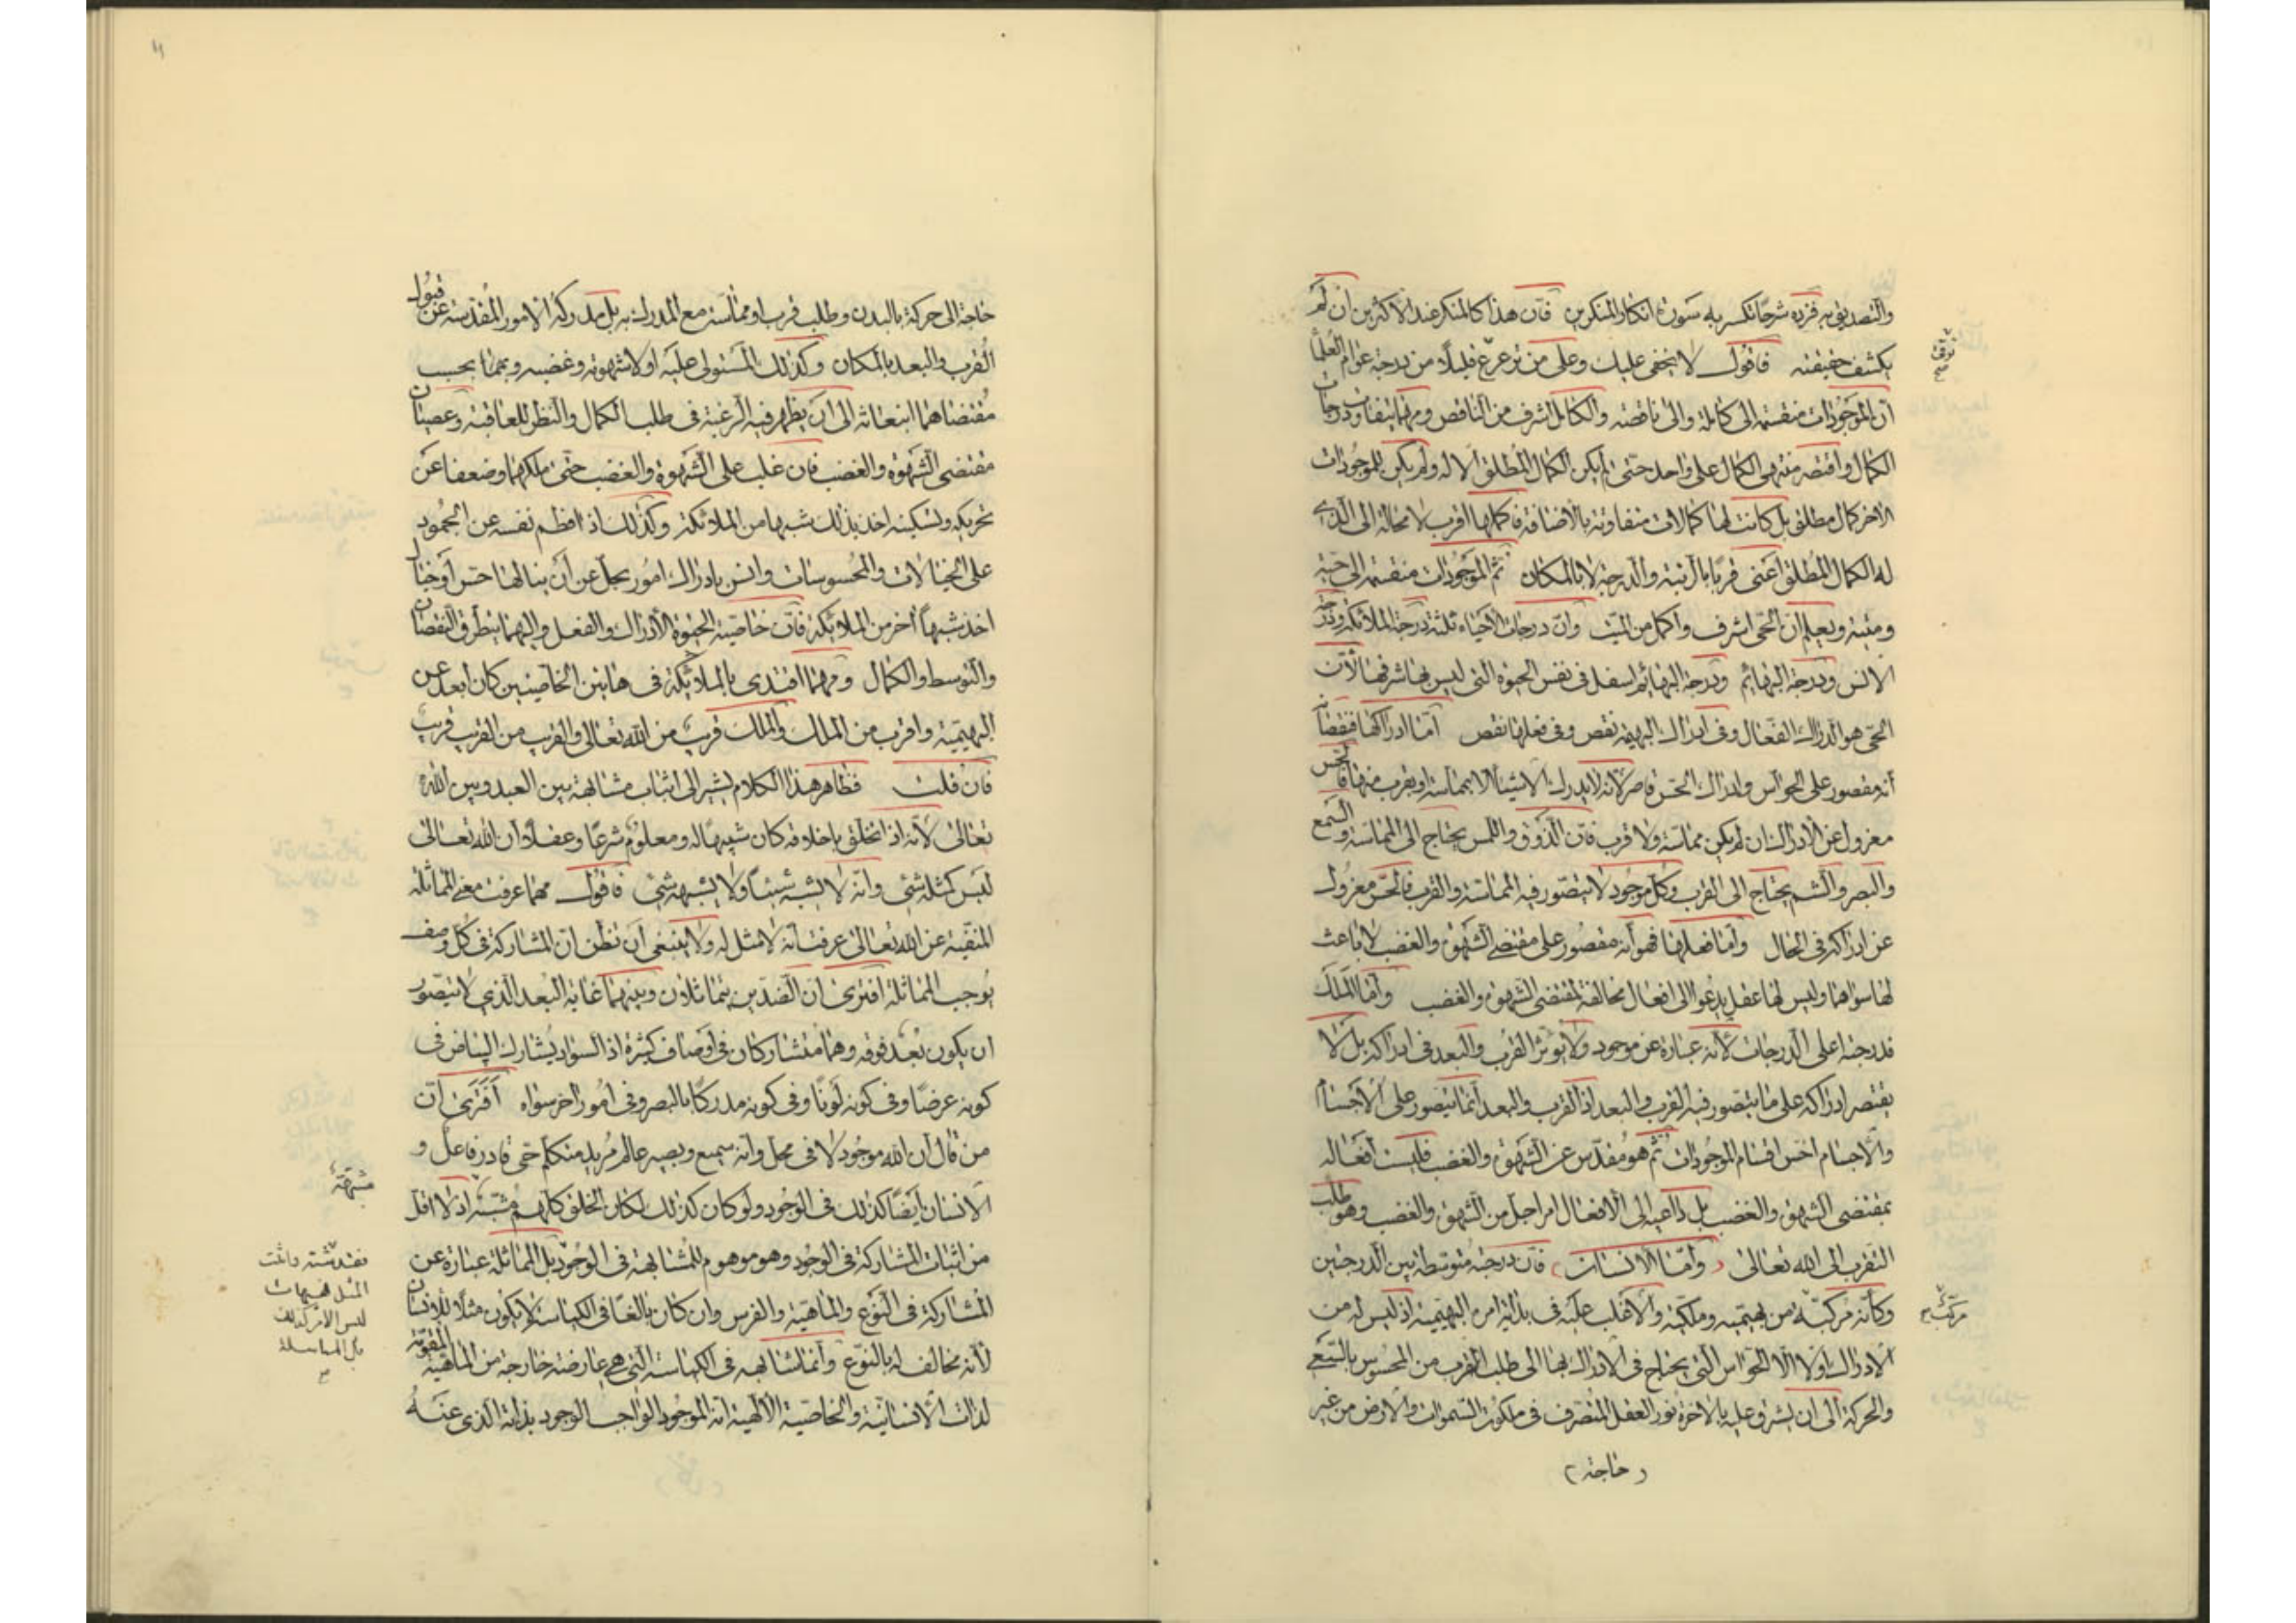 والتصديق به فزده شرحا تكسر به سورة انكار المنكرين فان هذا كالمنكر عند الاكثرين ان لم
يكشف حقيقته فاقول لا يخفى عليك وعلى من ترعرع قليلا من درجة عوام العلماء
ان الموجودات منقسمة الى كاملة والى ناقصة والكامل اشرف من الناقص ومهما يتفاوت درجات
الكمال واقتصر منتهى الكمال على واحد حتى لم يكن الكمال المطلق الا له ولم يكن للموجودات
الاخر كمال مطلق بل كانت لها كمالات متفاوتة بالاضافة فاكملها اقرب لا محالة الى الذي
له الكمال المطلق اعنى قربا بالرتبة والدرجة لا بالمكان ثم الموجودات منقسمة الى حية
وميتة ويعلم ان الحي اشرف واكمل من الميت وان درجات الاحياء ثلثة درجة الملائكة ودرجة
الانس ودرجة البهائم ودرجة البهائم اسفل في نفس الحيوة التي ليس بها شرفها لان
الحي هو الدراك الفعال وفى ادراك البهيمة نقص وفى فعلها نقص اما ادراكها فنقصانه
انه مقصور على الحواس وادراك الحس قاصر لانه لا يدرك الاشياء الا بمماسة او بقرب منها فالحس
معزول عن الادراك ان لم يكن مماسة ولا قرب فان الذوق واللمس يحتاج الى المماسة والسمع
والبصر والشم يحتاج الى القرب وكل موجود لا يتصور فيه المماسة والقرب فالحس معزول
عن ادراكه فى الحال واما فعلها فهو انه مقصور على مقتضى الشهوة والغضب لا باعث
لها سواهما وليس لها عقل يدعوا الى افعال مخالفة لمقتضى الشهوة والغضب واما الملك
فدرجته اعلى الدرجات لانه عبارة عن موجود ولا يؤثر القرب والبعد فى ادراكه بل لا
يقتصر ادراكه على ما يتصور فيه القرب والبعد اذ القرب والبعد انما يتصور على الاجسام
والاجسام اخس اقسام الموجودات ثم هو مقدس عن الشهوة والغضب فليست افعاله
بمقتضى الشهوة والغضب بل داعيه الى الافعال امر اجل من الشهوة والغضب وهو طلب
التقرب الى الله تعالى واما الانسان فان درجته متوسطة بين الدرجتين
وكانه مركبة من بهيمية وملكية والاغلب عليه فى بداية امره البهيمية اذ ليس له من
الادراك اولا الا الحواس التي يحتاج في الادراك بها الى طلب القرب من المحسوس بالسعي
والحركة الى ان يشرق عليه بالاخرة نور العقل المتصرف فى ملكوت السموات والارض من غير
( حاجة )
مركب
حاجة الى حركة بالبدن وطلب قرب او مماسة مع المدرك به بل مدركه الامور المقدسة عن قبول
القرب والبعد بالمكان وكذلك المستولى عليه اولا شهوته وغضبه وبهما بحسب
مقتضاهما انبعاثه الى ان يظهر فيه الرغبة فى طلب الكمال والنظر للعاقبة وعصيان
مقتضى الشهوة والغضب فان غلب على الشهوة والغضب حتى ملكهما وضعفا عن
تحريكه وتسكينه اخذ بذلك شبها من الملائكة وكذلك اذا فطم نفسه عن الجمود
على الخيالات والمحسوسات وانس بادراك امور يجل عن ان ينالها حس او خيال
اخذ شبها اخر من الملائكة فان خاصية الحيوة الادراك والفعل واليهما يتطرق النقصان
والتوسط والكمال ومهما اقتدى بالملائكة فى هاتين الخاصيتين كان ابعد عن
البهيمية واقرب من الملك والملك قريب من الله تعالى والقريب من القريب قريب
فان قلت فظاهر هذا الكلام يشير الى اثبات مشابهة بين العبد وبين الله
تعالى لانه اذا تخلق باخلاقه كان شبيها له ومعلوم شرعا وعقلا ان الله تعالى
ليس كمثله شئ وانه لا يشبه شيئا ولا يشبهه شئ فاقول مهما عرفت معنى المماثلة
المنفية عن الله تعالى عرفت انه لا مثل له ولا ينبغى ان تظن ان المشاركة فى كل وصف
يوجب المماثلة افترى ان الضدين يتماثلان وبينهما غاية البعد الذي لا يتصور
ان يكون بعد فوقه وهما متشاركان فى اوصاف كثيرة اذ السواد يشارك البياض فى
كونه عرضا وفى كونه لونا وفى كونه مدركا بالبصر وفى امور اخر سواه افترى ان
من قال ان الله موجود لا فى محل وانه سميع وبصير عالم مريد متكلم حي قادر فاعل و
الانسان ايضا كذلك فى الوجود ولو كان كذلك لكان الخلق كلهم مشبهة اذ لا اقل
من اثبات المشاركة فى الوجود وهو موهوم للمشابهة فى الوجود بل المماثلة عبارة عن
المشاركة فى النوع والماهية والفرس وان كان بالغا فى الكياسة لا يكون مثلا للانسان
لانه مخالف له بالنوع وانما شابهه فى الكياسة التي هي عارضة خارجة من الماهية المقومة
لذات الانسانية والخاصية الالهية انه الموجود الواجب الوجود بذاته الذى عنه
مشبهة
المثل فهيهات
ليس الامر كذلك